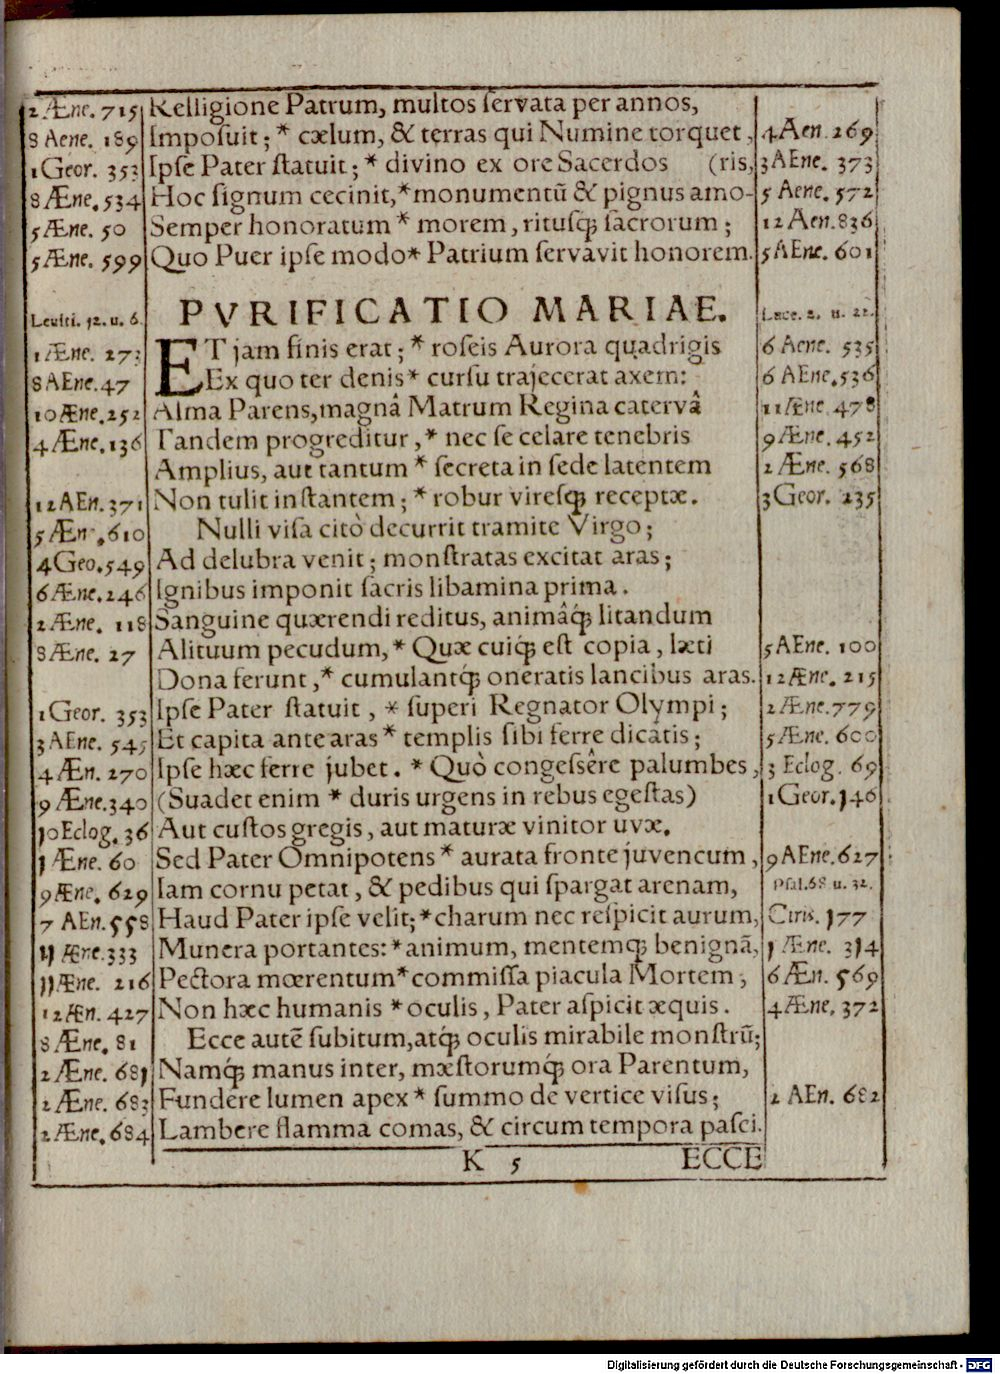 2 Æne. 715 Relligione Patrum, multos servata per annos,
8 Aene. 189 Imposuit; * cælum, & terras qui Numine torquet, 4 Aen. 269
1 Geor. 353 Ipse Pater statuit; * divino ex ore Sacerdos (ris, 3 AEne. 373
8 Æne. 534 Hoc signum cecinit, * monumentũ & pignus amo- 5 Aene. 572
5 Æne. 50 Semper honoratum * morem, ritusq; sacrorum; 12 Aen. 836
5 Æne. 599 Quo Puer ipse modo * Patrium servavit honorem. 5 AEne. 601
Leviti. 12. u. 6. PVRIFICATIO MARIAE. Luce. 2. u. 22.
1 Æne. 273 ET jam finis erat; * roseis Aurora quadrigis 6 Aene. 535
8 AEne. 47 Ex quo ter denis * cursu trajecerat axem: 6 AEne. 536
10 Æne. 252 Alma Parens, magnâ Matrum Regina catervâ 11 Æne. 478
4 Æne. 136 Tandem progreditur, * nec se celare tenebris 9 Æne. 452
Amplius, aut tantum * secreta in sede latentem 2 Æne. 568
12 AEn. 371 Non tulit instantem; * robur viresq; receptæ. 3 Geor. 235
5 Æn. 610 Nulli visa citò decurrit tramite Virgo;
4 Geo. 549 Ad delubra venit; monstratas excitat aras;
6 Æne. 246 Ignibus imponit sacris libamina prima.
2 Æne. 118 Sanguine quærendi reditus, animâq́; litandum
8 Æne. 27 Alituum pecudum, * Quæ cuiq́; est copia, læti 5 AEne. 100
Dona ferunt, * cumulantq́; oneratis lancibus aras. 12 Æne. 215
1 Geor. 353 Ipse Pater statuit, * superi Regnator Olympi; 2 Æne. 779
3 AEne. 545 Et capita ante aras * templis sibi ferre dicatis; 5 Æne. 600
4 Æn. 270 Ipse hæc ferre jubet. * Quò congessêre palumbes, 3 Eclog. 69
9 Æne. 340 (Suadet enim * duris urgens in rebus egestas) 1 Geor. 146
10 Eclog. 36 Aut custos gregis, aut maturæ vinitor uvæ.
1 Æne. 60 Sed Pater Omnipotens * aurata fronte juvencum, 9 AEne. 627
9 Æne. 629 Iam cornu petat, & pedibus qui spargat arenam, Psal. 68 u. 32.
7 AEn. 558 Haud Pater ipse velit; * charum nec respicit aurum, Ciris. 177
11 Æne. 333 Munera portantes: * animum, mentemq; benignã, 1 Æne. 314
11 Æne. 216 Pectora mœrentum * commissa piacula Mortem, 6 Æn. 569
12 Æn. 427 Non hæc humanis * oculis, Pater aspicit æquis. 4 Æne. 372
8 Æne. 81 Ecce autẽ subitum, atq́; oculis mirabile monstrũ;
2 Æne. 681 Namq́; manus inter, mæstorumq́; ora Parentum,
2 Æne. 683 Fundere lumen apex * summo de vertice visus; 2 AEn. 682
2 Æne. 684 Lambere flamma comas, & circum tempora pasci.
K 5 ECCE
Digitalisierung gefördert durch die Deutsche Forschungsgemeinschaft - DFG